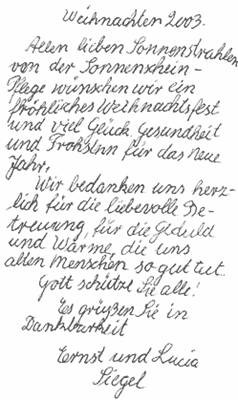 Weihnachten 2003.
Allen lieben Sonnenstrahlen
von der Sonnenschein-
Pflege wünschen wir ein
fröhliches Weihnachtsfest
und viel Glück, Gesundheit
und Frohsinn für das neue
Jahr,
Wir bedanken uns herz-
lich für die liebevolle Be-
treuung, für die Geduld
und Wärme, die uns
alten Menschen so gut tut.
Gott schütze Sie alle!
Es grüßen Sie in
Dankbarkeit
Ernst und Lucia
Siegel